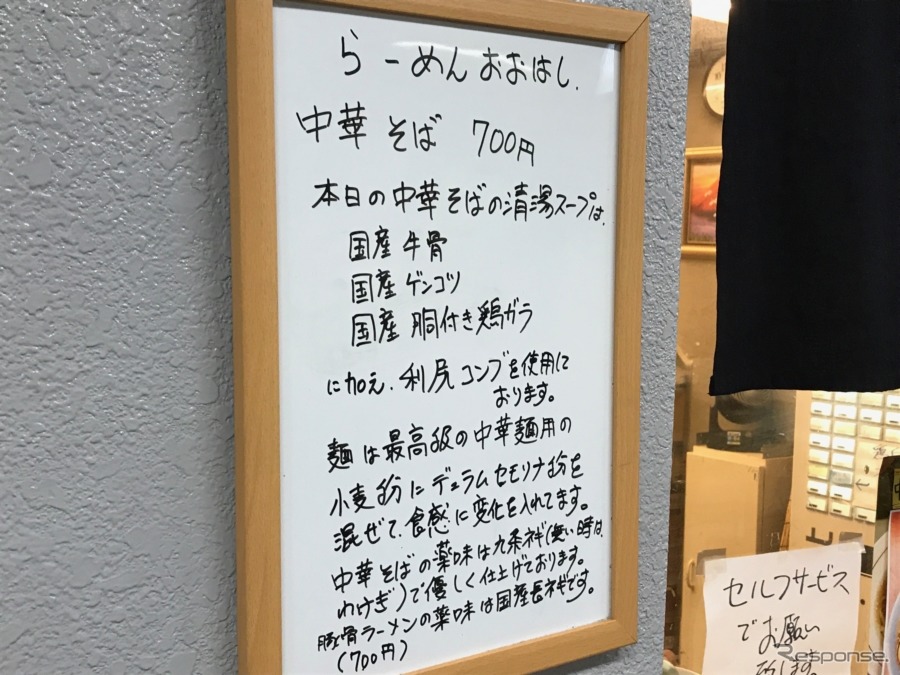 らーめん おおはし.
中華そば 700円
本日の中華そばの清湯スープは、
国産 牛骨
国産 ゲンコツ
国産 胴付き鶏ガラ
に加え、利尻コンブを使用して
おります。
麺は最高級の中華麺用の
小麦粉にデュラムセモリナ粉を
混ぜて、食感に変化を入れてます。
中華そばの薬味は九条ネギ(無い時は、
わけぎ)で優しく仕上げております。
豚骨ラーメンの薬味は国産長ネギです。
(700円)
セルフサービス
でお願い
致します。
Response.